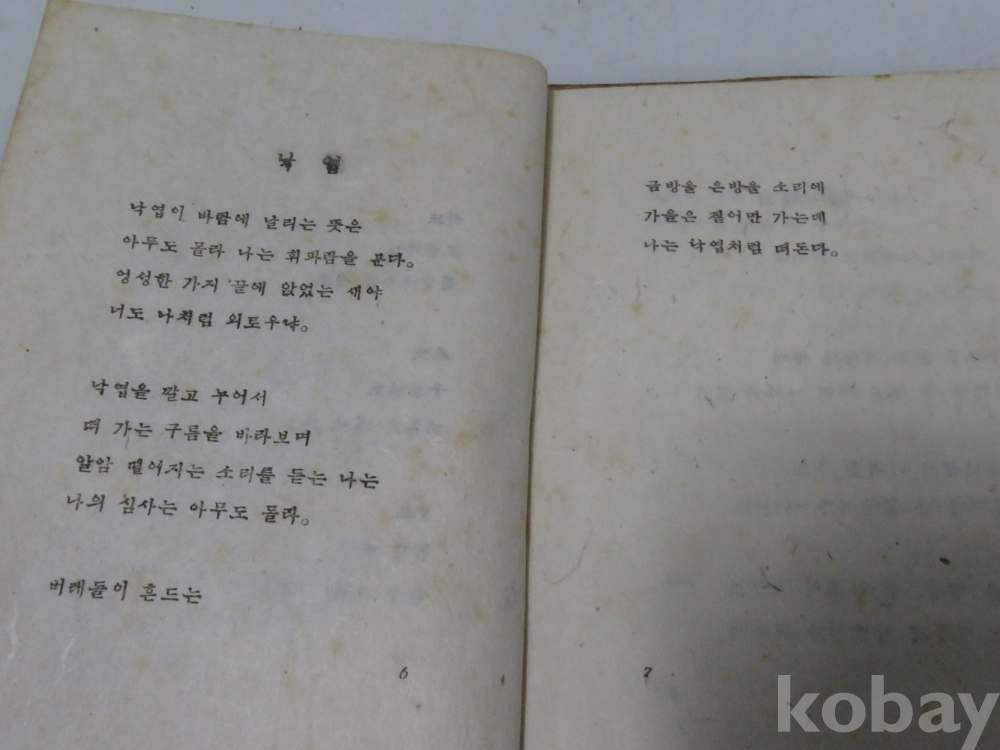 낙엽
낙엽이 바람에 날리는 뜻은
아무도 몰라 나는 휘파람을 분다。
엉성한 가지 끝에 앉었는 새야
너도 나처럼 외로우냐。
낙엽을 깔고 누어서
떠 가는 구름을 바라보며
알암 떨어지는 소리를 듣는 나는
나의 심사는 아무도 몰라。
버레들이 흔드는
6
금방울 은방울 소리에
가을은 절어만 가는데
나는 낙엽처럼 떠돈다。
7
kobay